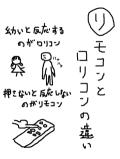 リモコンと
ロリコンの違い
幼いと反応する
のがロリコン
押さないと反応しない
のがリモコン